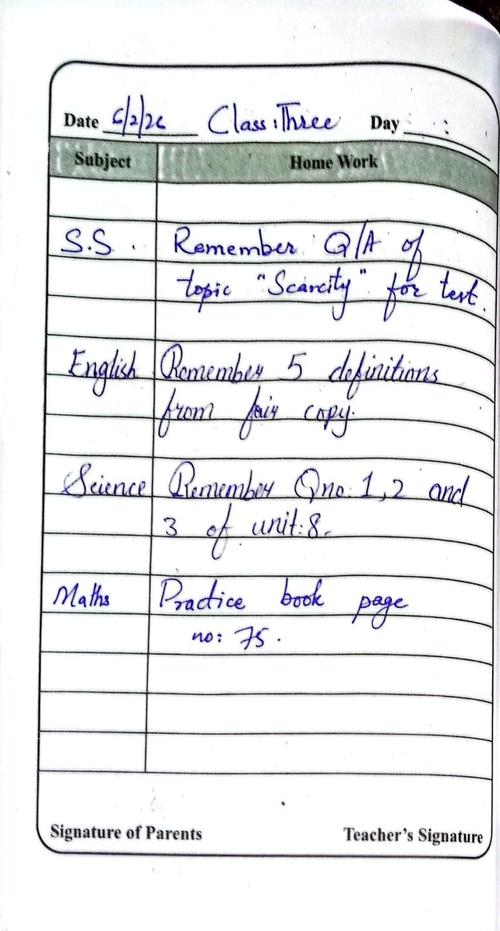 Date 6/2/26 Class:Three Day
Subject Home Work
S.S. Remember Q/A of
topic "Scarcity" for test.
English Remember 5 definitions
from fair copy.
Science Remember Qno: 1,2 and
3 of unit:8.
Maths Practice book page
no: 75.
Signature of Parents Teacher's Signature